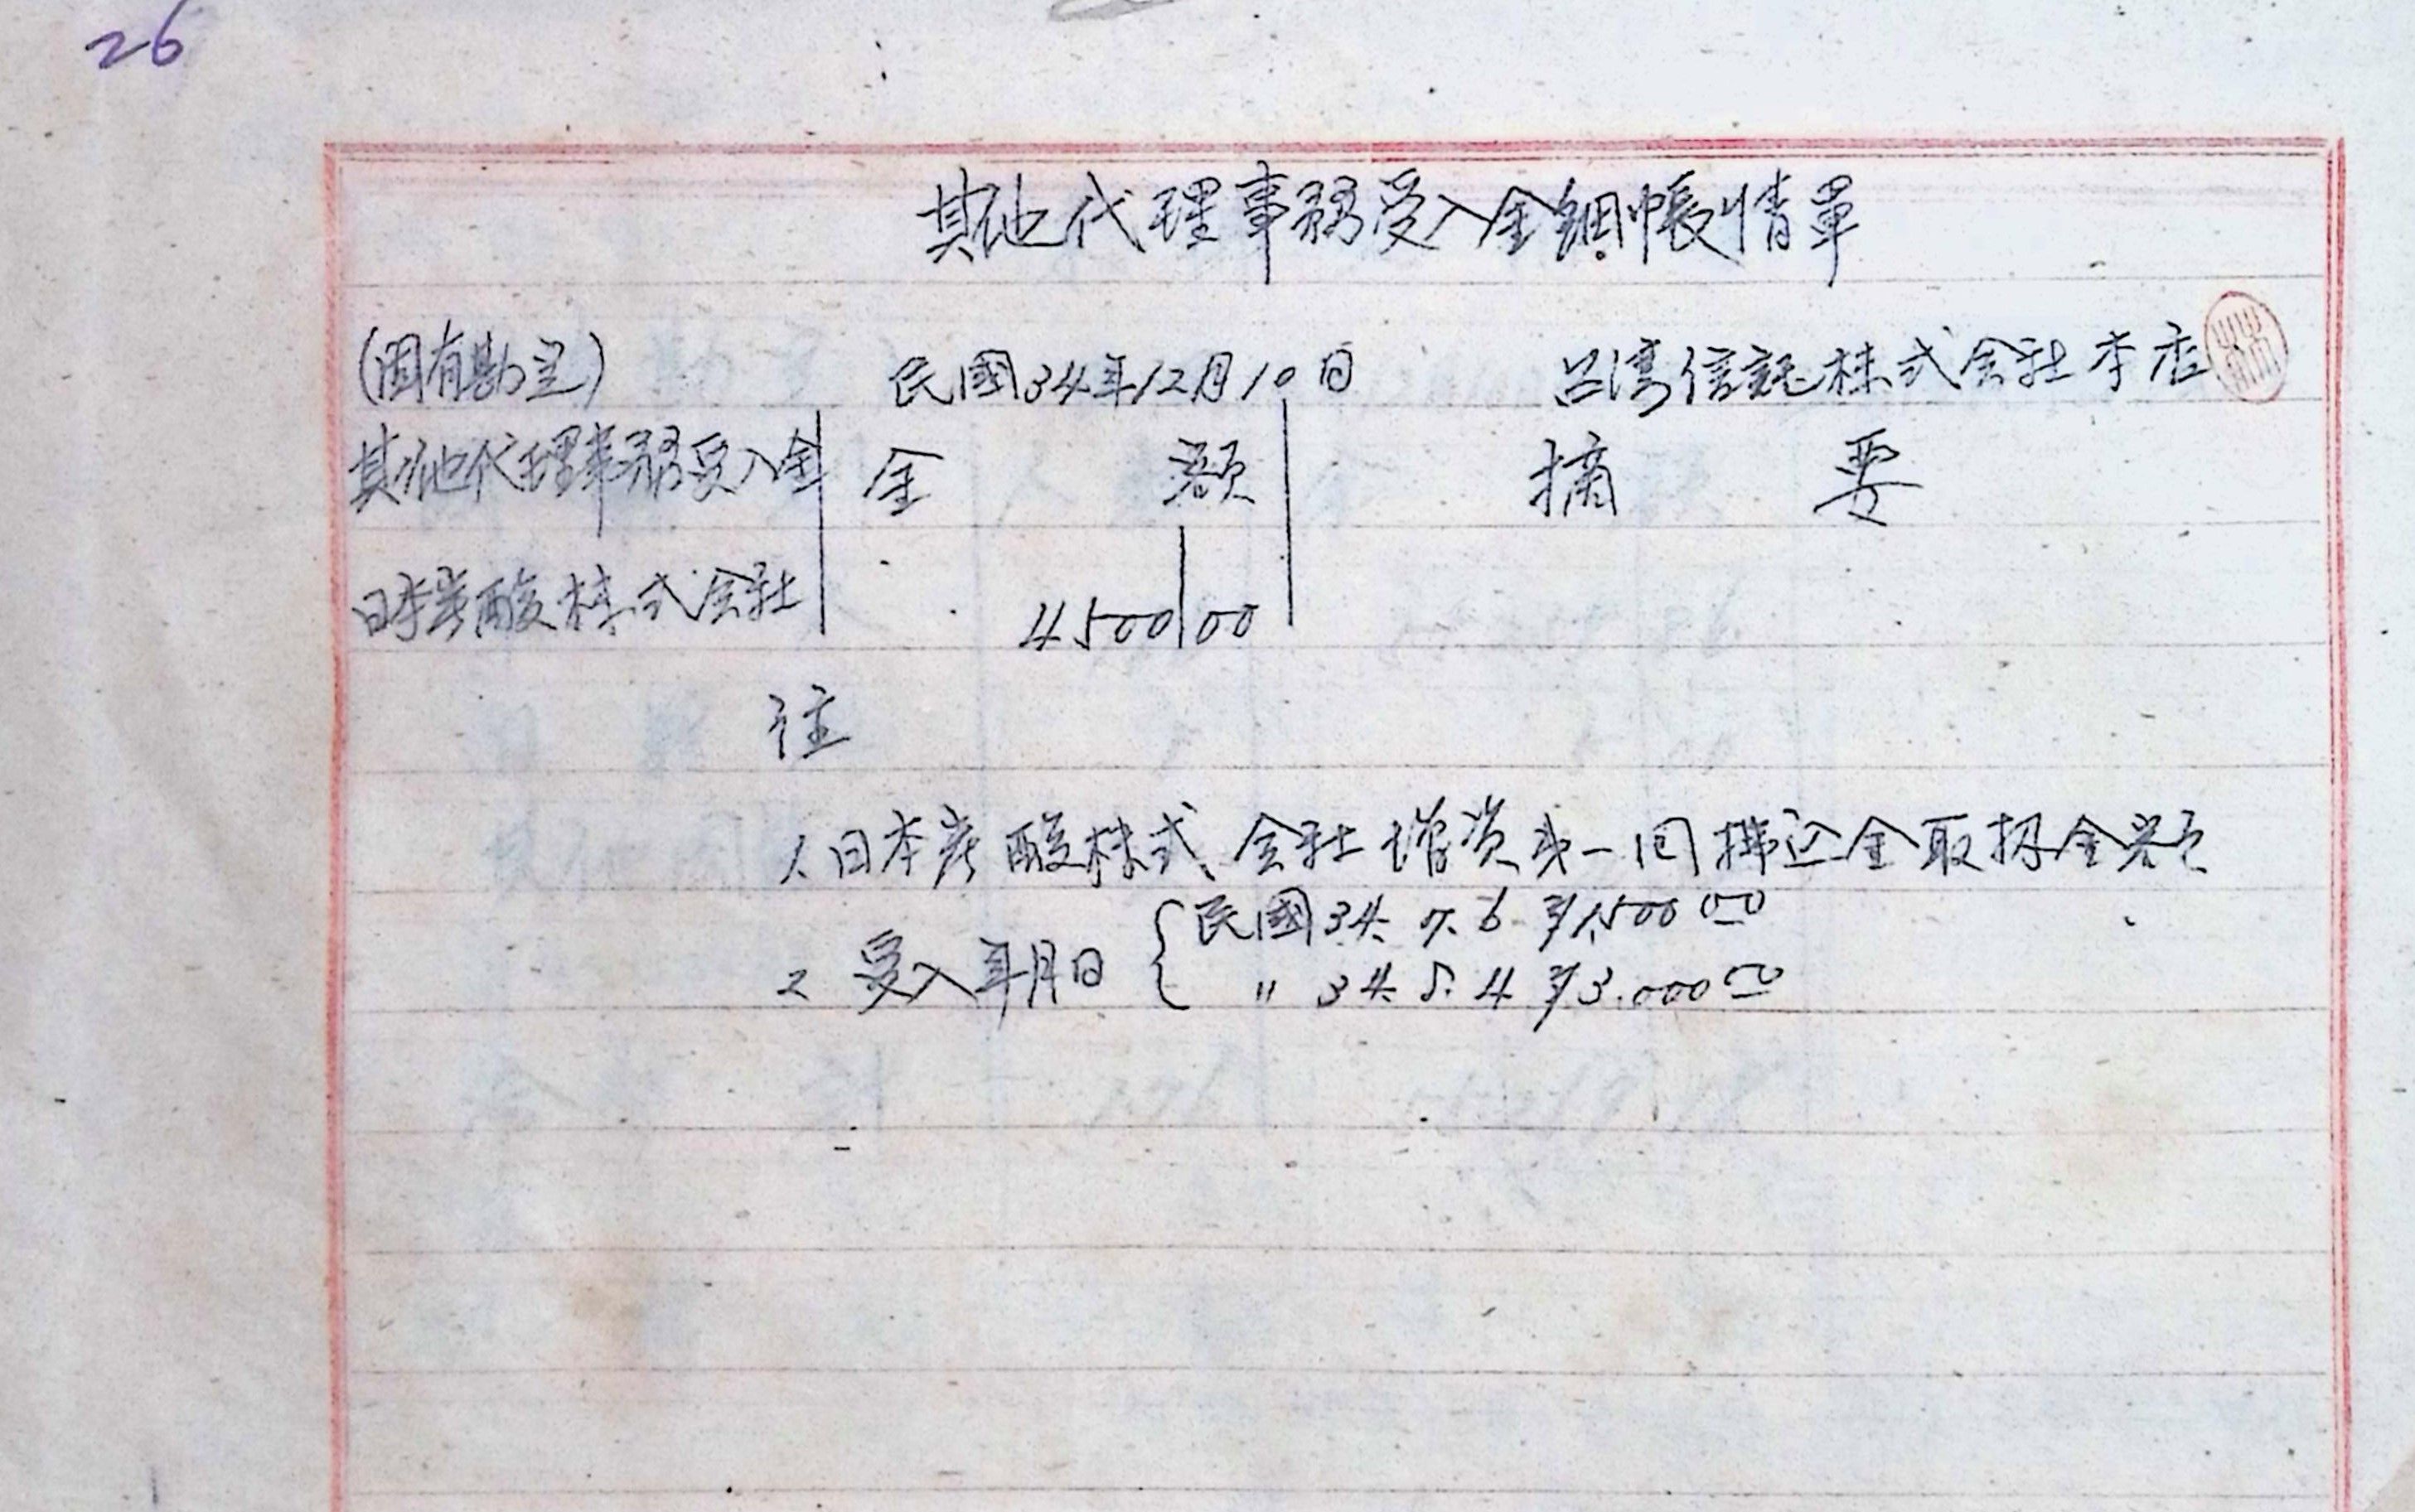 26
其他代理事務受入金細帳情單
(固有勘定) 民國34年12月10日 台湾信託株式会社本店
其他代理事務受入金 金額 摘要
日本炭酸株式会社 4500 00
注
1. 日本炭酸株式会社増資第一回拂込金取扱金額
2 受入年月日 { 民國34. 7. 6 ¥1,500 00
〃 34. 5. 4 ¥3.000 00